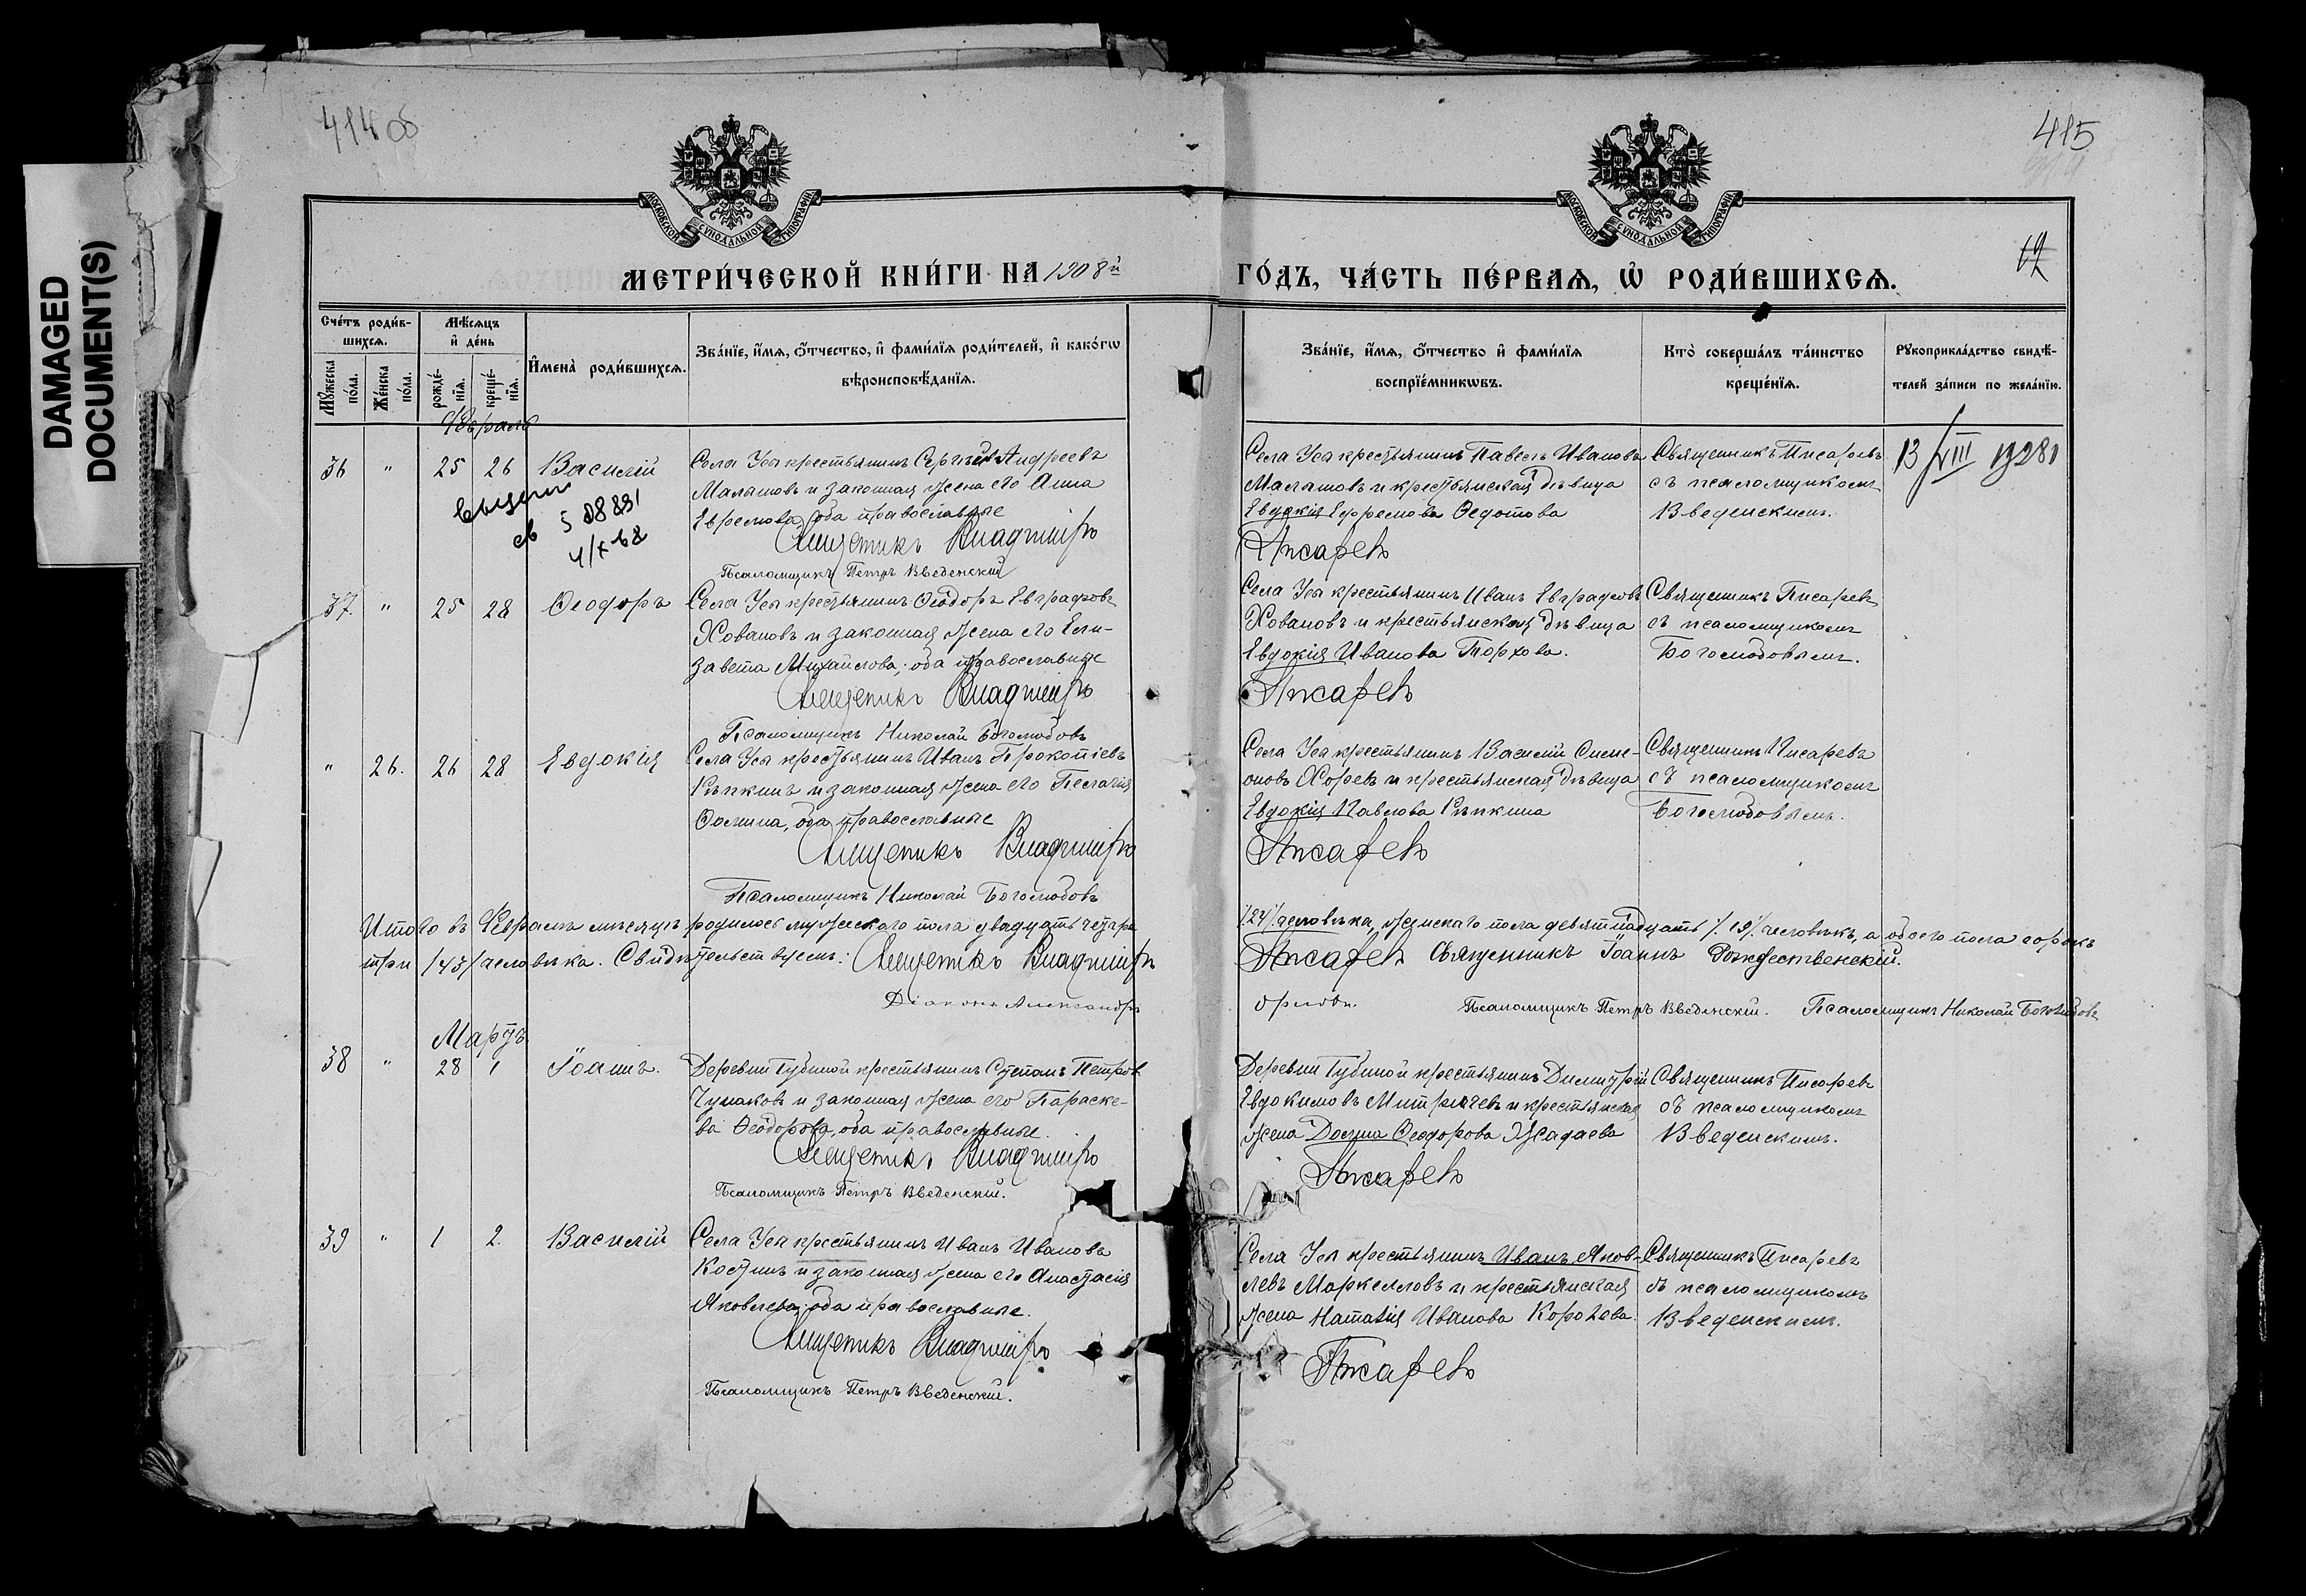 DAMAGED
DOCUMENT(S)
415
МОСКОВСКОЙ СѴНОДАЛЬНОЙ ТИПОГРАФІИ
МОСКОВСКОЙ СѴНОДАЛЬНОЙ ТИПОГРАФІИ
МЕТРИ́ЧЕСКОЙ КНИ́ГИ НА 1908й
ГО́ДЪ, ЧА́СТЬ ПЕ́РВАѦ, Ѡ҆ РОДИ́ВШИХСѦ.
12
Сче́тъ роди́в-
шихсѧ.
Мꙋ́жеска
по́ла.
Же́нска
по́ла.
Мѣ́сѧцъ
и҆ де́нь
рожде́-
нїѧ.
креще́-
нїѧ.
И҆мена̀ роди́вшихсѧ.
Зва́нїе, и҆́мѧ, ѻ҆́тчество, и҆ фами́лїѧ роди́телей, и҆ како́гѡ
вѣроисповѣ́данїѧ.
Зва́нїе, и҆́мѧ, ѻ҆́тчество и҆ фами́лїѧ
воспрїе́мникѡвъ.
Кто̀ соверша́лъ та́инство
креще́нїѧ.
Рꙋкоприкла́дство свидѣ́-
телей за́писи по жела́нїю.
Февраль
36 " 25 26 Василій
Села Уса крестьянинъ Сергѣй Андреевъ
Малашовъ и законная жена его Анна
Ефремова, оба православные
Священникъ Владиміръ
Псаломщикъ Петръ Введенскій
Села Уса крестьянинъ Павелъ Ивановъ
Малашовъ и крестьянская дѣвица
Евдокія Ефремова Ѳедотова
Писаревъ
Священникъ Писаревъ
съ псаломщикомъ
Введенскимъ.
13/VIII
37. " 25 28 Ѳеодоръ
Села Уса крестьянинъ Ѳеодоръ Евграфовъ
Ховановъ и законная жена его Ели-
завета Михайлова; оба православные
Священникъ Владиміръ
Псаломщикъ Николай Боголюбовъ
Села Уса крестьянинъ Иванъ Евграфовъ
Ховановъ и крестьянская дѣвица
Евдокія Иванова Торхова.
Писаревъ
Священникъ Писаревъ
съ псаломщикомъ
Боголюбовымъ.
" 26. 26 28 Евдокія
Села Уса крестьянинъ Иванъ Прокопіевъ
Рѣпкинъ и законная жена его Пелагія
Ѳомина, оба православные
Священникъ Владиміръ
Псаломщикъ Николай Боголюбовъ
Села Уса крестьянинъ Василій Симе-
оновъ Хоревъ и крестьянская дѣвица
Евдокія Павлова Рѣпкина
Писаревъ
Священникъ Писаревъ
съ псаломщикомъ
Боголюбовымъ.
Итого въ Февралѣ мѣсяцѣ родилось мужескаго пола двадцать четыре
/24/ человѣка, женскаго пола девятнадцать /19/ человѣкъ, а обоего пола сорокъ
три /43/ человѣка. Свидѣтельствуемъ: Священникъ Владиміръ
Писаревъ Священникъ Іоаннъ Рождественскій.
Діаконъ Александръ
Орловъ. Псаломщикъ Петръ Введенскій. Псаломщикъ Николай Боголюбовъ
Мартъ
38 " 28 1 Іоаннъ.
Деревни Губиной крестьянинъ Стефанъ Петровъ
Чумаковъ и законная жена его Параске-
ва Ѳеодорова, оба православные.
Священникъ Владиміръ
Псаломщикъ Петръ Введенскій.
Деревни Губиной крестьянинъ Димитрій
Евдокимовъ Митрячевъ и крестьянская
жена Домна Ѳеодорова Жадаева
Писаревъ
Священникъ Писаревъ
съ псаломщикомъ
Введенскимъ.
39 " 1 2. Василій
Села Уса крестьянинъ Иванъ Ивановъ
Костинъ и законная жена его Анастасія
Яковлева; оба православные.
Священникъ Владиміръ
Псаломщикъ Петръ Введенскій.
Села Уса крестьянинъ Иванъ Яков-
левъ Маркелловъ и крестьянская
жена Наталія Иванова
Писаревъ
Священникъ Писаревъ
съ псаломщикомъ
Введенскимъ.